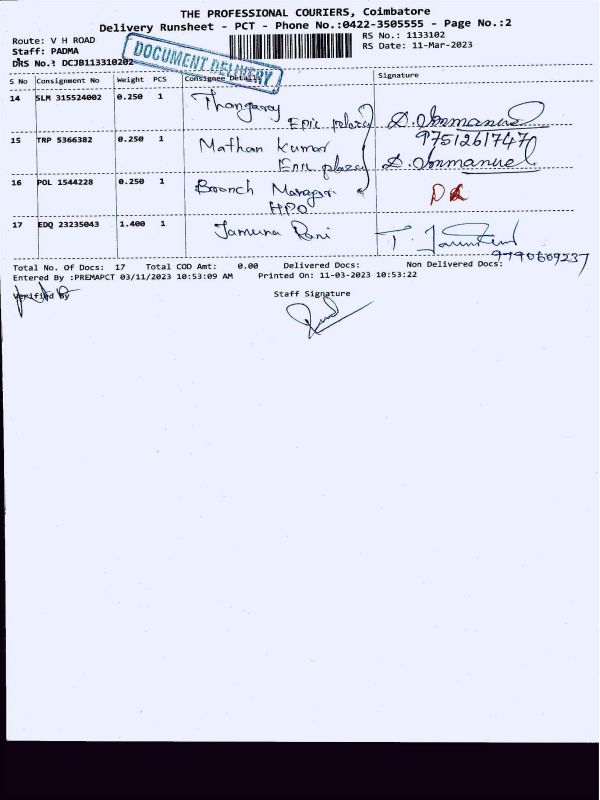 THE PROFESSIONAL COURIERS, Coimbatore
Delivery Runsheet - PCT - Phone No.:0422-3505555 - Page No.:2
Route: V H ROAD
RS No.: 1133102
Staff: PADMA
RS Date: 11-Mar-2023
DRS No.: DCJB113310202
DOCUMENT DELIVERY
S No Consignment No Weight PCS Consignee Details Signature
14 SLM 315524002 0.250 1 Thangaraj
Epic plaza
9751261747
15 TRP 5366382 0.250 1 Mathan Kumar
Epic plaza
16 POL 1544228 0.250 1 Branch Manager
HPO
17 EDQ 23235043 1.400 1 Jamuna Rani
9790609237
Total No. Of Docs: 17 Total COD Amt: 0.00 Delivered Docs: Non Delivered Docs:
Entered By :PREMAPCT 03/11/2023 10:53:09 AM Printed On: 11-03-2023 10:53:22
Verified By Staff Signature